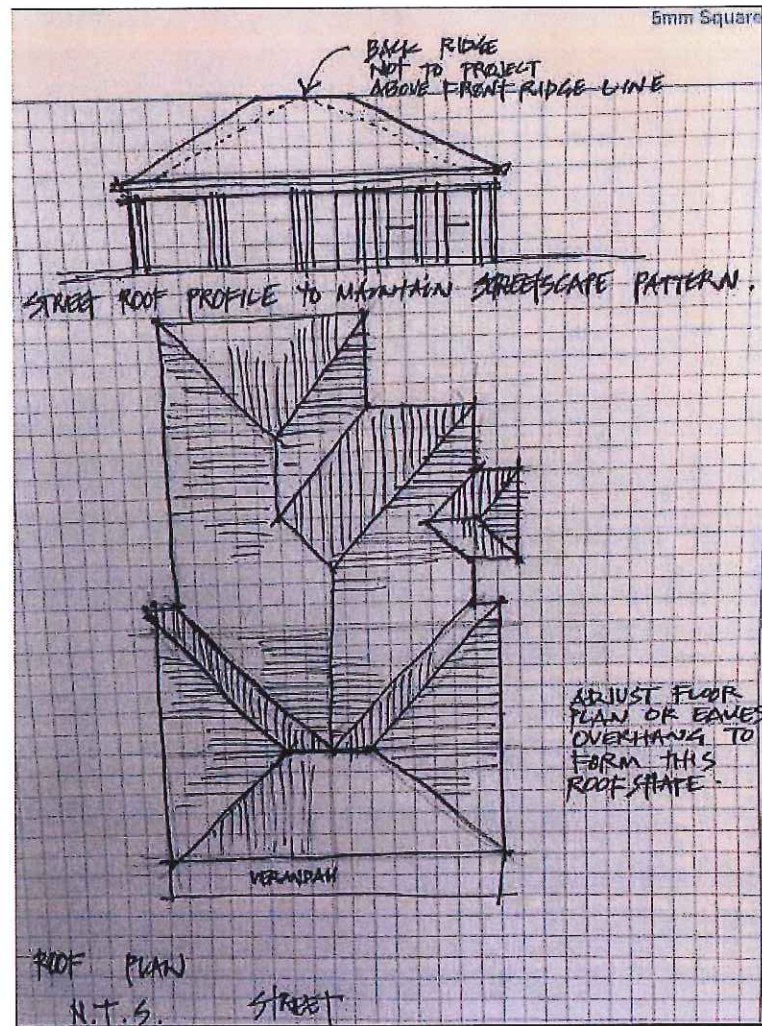 5mm Square
BACK RIDGE
NOT TO PROJECT
ABOVE FRONT RIDGE LINE
STREET ROOF PROFILE TO MAINTAIN STREETSCAPE PATTERN.
ADJUST FLOOR
PLAN OR EAVES
OVERHANG TO
FORM THIS
ROOF SHAPE.
VERANDAH
ROOF PLAN
N.T.S. STREET